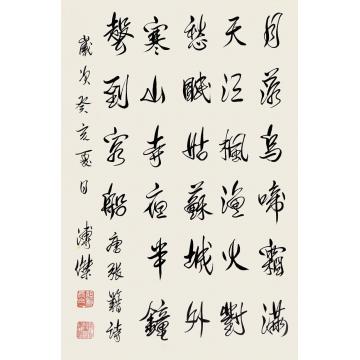 月落烏啼霜滿
天江楓漁火對
愁眠姑蘇城外
寒山寺夜半鐘
聲到客船 唐張籍詩
歲次癸亥夏日 溥傑